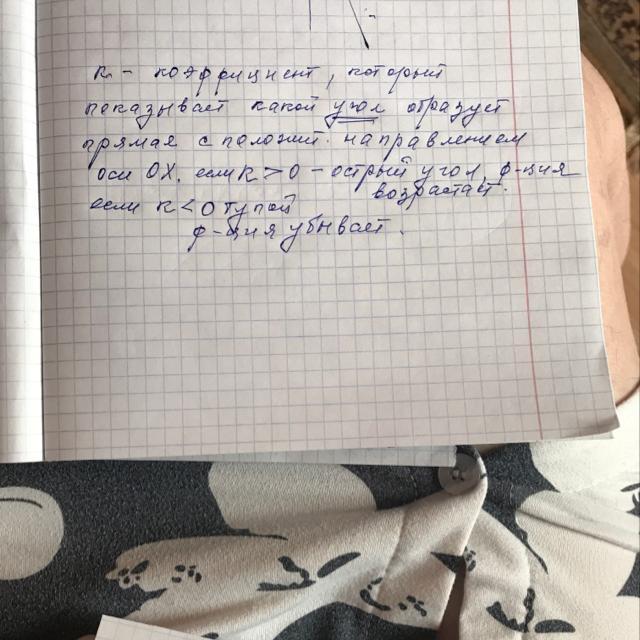 к - коэффициент, который
показывает какой угол образует
прямая с положит. направлением
оси OX. если к > 0 - острый угол, ф-ция
возрастает.
если к < 0 тупой
ф-ция убывает.